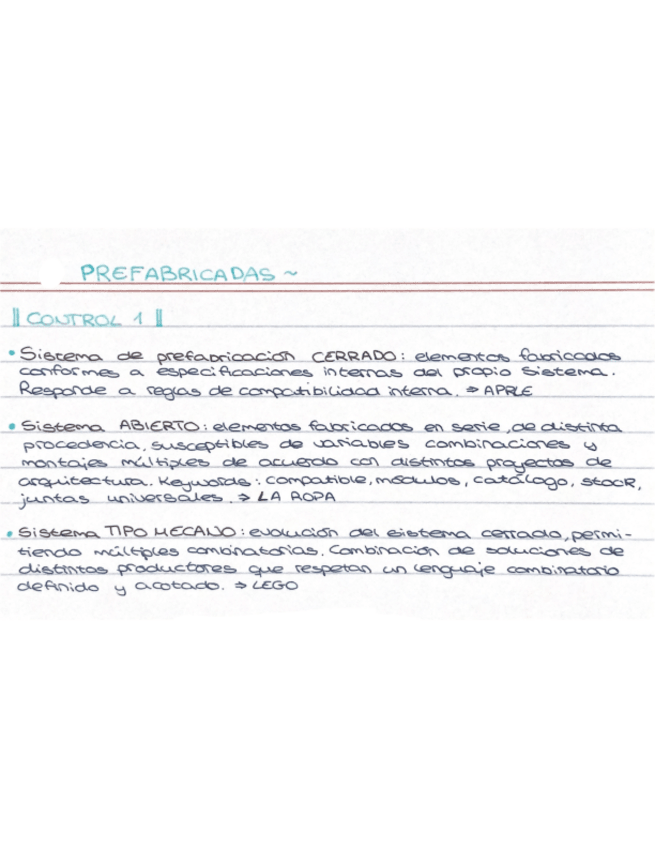 PREFABRICADAS ~
CONTROL 1
• Sistema de prefabricación CERRADO: elementos fabricados
conformes a especificaciones internas del propio sistema.
Responde a reglas de compatibilidad interna. ⇒ APPLE
• Sistema ABIERTO: elementos fabricados en serie, de distinta
procedencia, susceptibles de variables combinaciones y
montajes múltiples de acuerdo con distintos proyectos de
arquitectura. Keywords: compatible, módulos, catálogo, stock,
juntas universales. ⇒ LA ROPA
• Sistema TIPO MECANO: evolución del sistema cerrado, permi-
tiendo múltiples combinatorias. Combinación de soluciones de
distintos productores que respetan un lenguaje combinatorio
definido y acotado. ⇒ LEGO